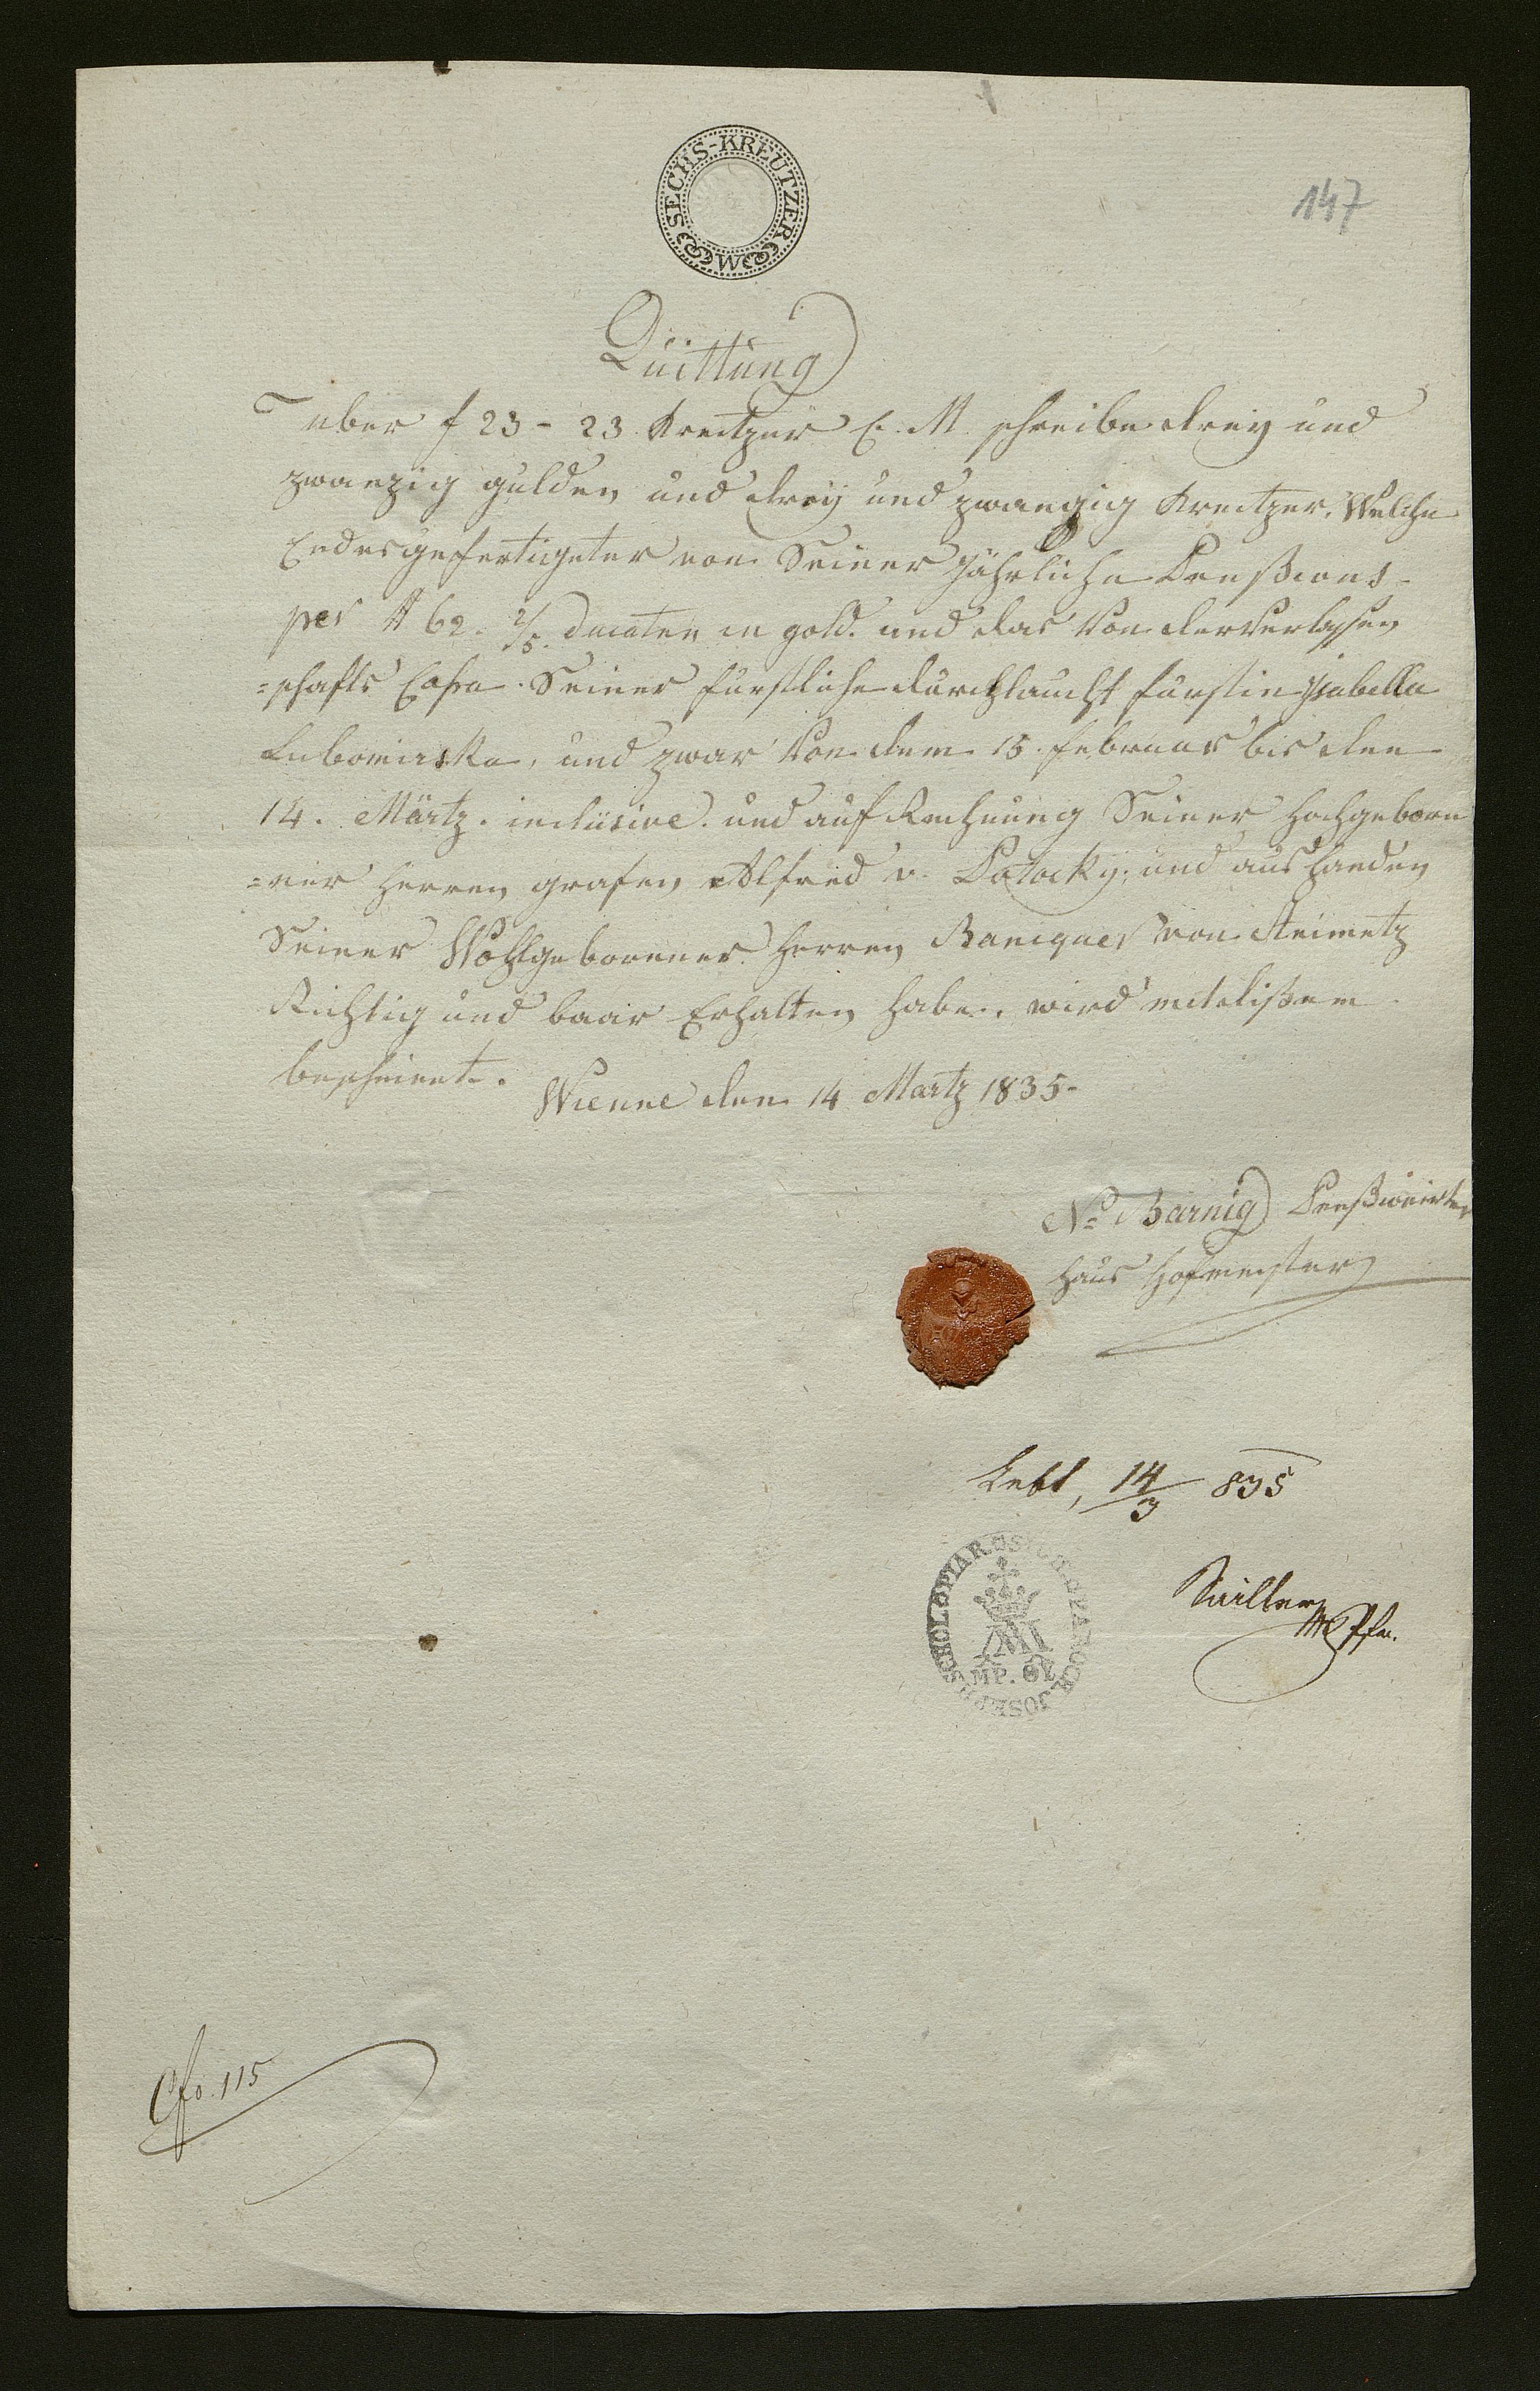 SECHS-KREUTZER
W
147
Quittung
uber f 23 - 23 Kreitzer C. M. schreibe dreÿ und
zwanzig gulden und dreÿ und zwanzig Kreitzer, Welche
Endesgefertigeter von Seiner Jährliche Penßions-
per # 62. 2/5. ducaten in gold. und das Von der verlassen
=schafts Cassa. Seiner fürstliche durchlaucht fürstin Isabella
Lubomirska, und zwar Von dem 15. februar bis den
14. Märtz. inclusive. und auf Rechnung Seiner Hochgeborn
=ner Herren grafen Alfred v. Potocky; und aus Handen
Seiner Wohlgeborener Herren Banequer von Steimetz
Richtig und baar Erhalten habe, wird mit dißem
bescheint.
Wienne den 14 Martz 1835-
Ns Barnig Penßionirter
Haus Hofmeister
Lebt, 14/3 835
SCHOL. PIAR.
MP. ΘΥ
JOSEPH
115